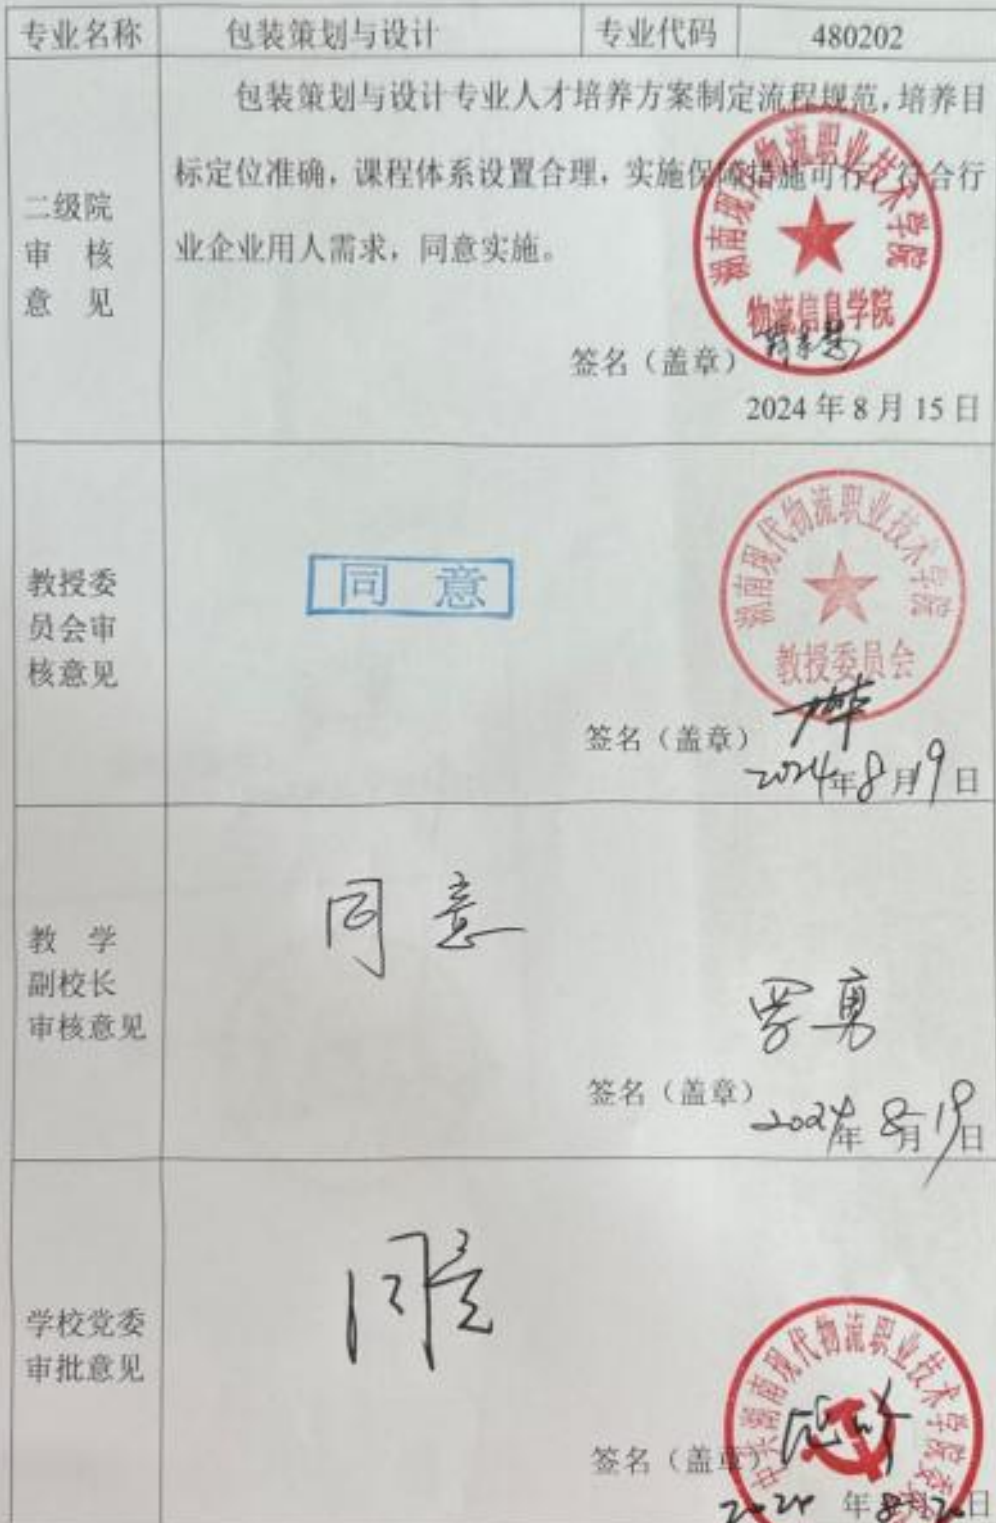 专业名称 包装策划与设计 专业代码 480202
二级院
审 核
意 见
包装策划与设计专业人才培养方案制定流程规范，培养目
标定位准确，课程体系设置合理，实施保障措施可行，符合行
业企业用人需求，同意实施。
湖南现代物流职业技术学院
物流信息学院
签名（盖章）
2024 年 8 月 15 日
教授委
员会审
核意见
同 意
湖南现代物流职业技术学院
教授委员会
签名（盖章）
2024年8月19日
教 学
副校长
审核意见
同意
罗勇
签名（盖章）
2024年8月19日
学校党委
审批意见
同意
中共湖南现代物流职业技术学院委员会
签名（盖章）
2024 年8月20日